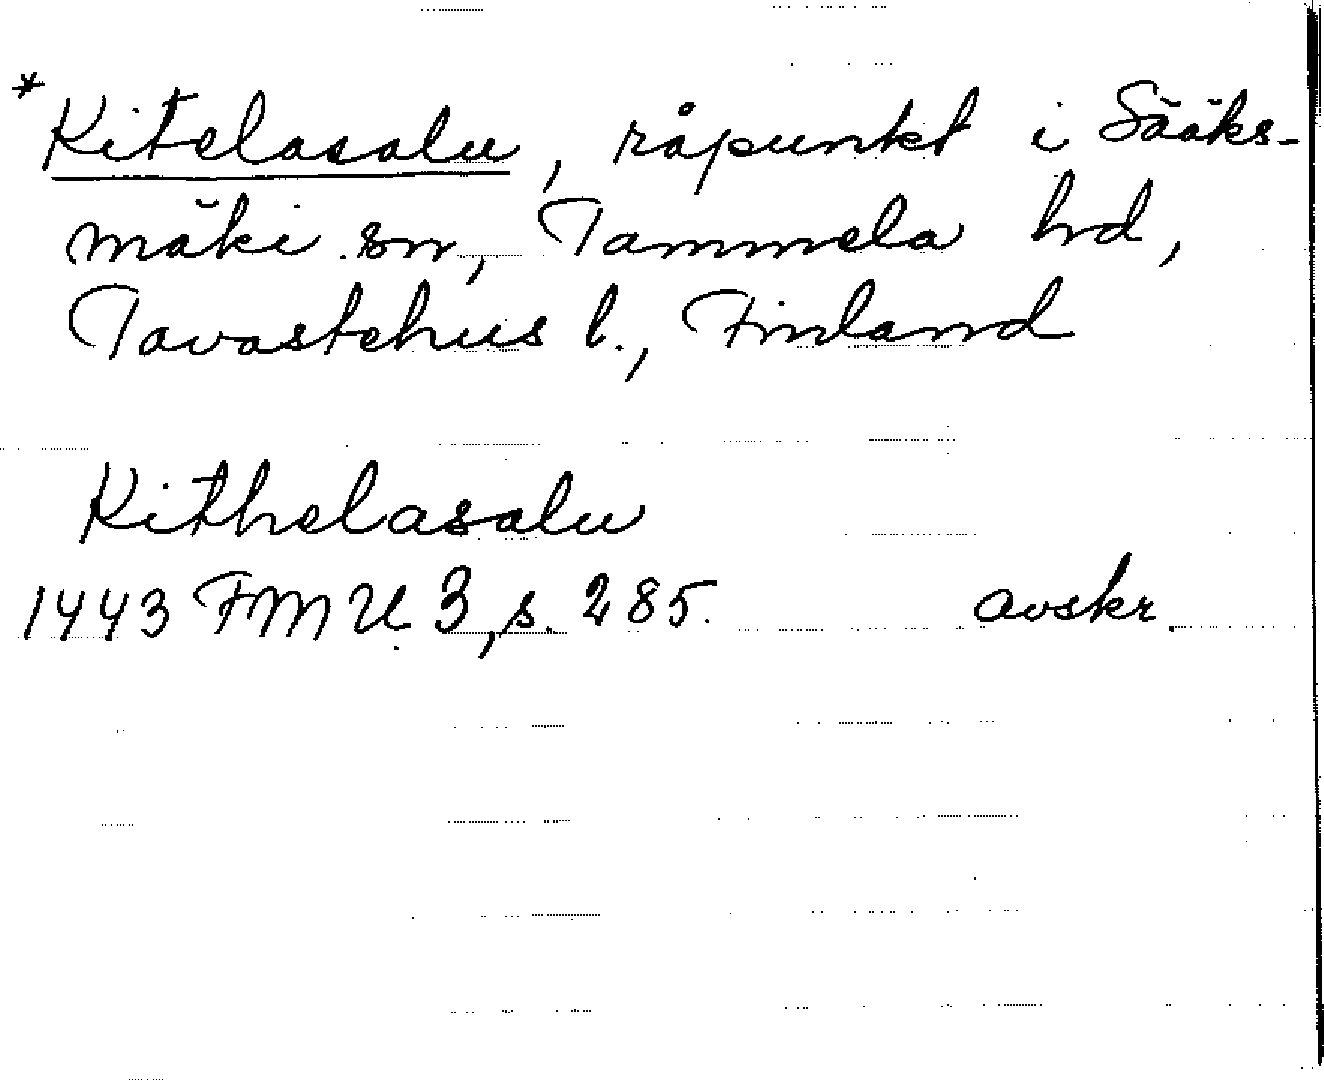 * Kitelasalu, råpunkt i Sääks-
mäki sn, Tammela hd,
Tavastehus l., Finland
Kithelasalu
1443 FMU 3, s. 285. avskr.